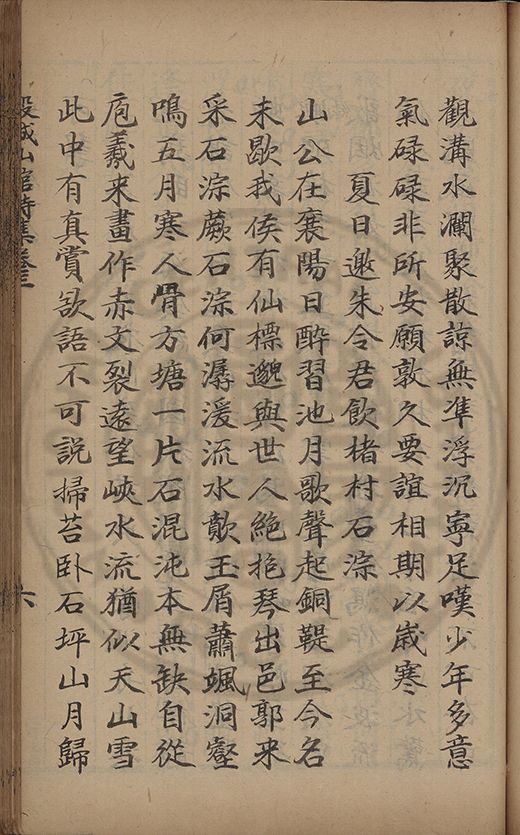 觀溝水瀾聚散諒無準浮沉寧足嘆少年多意
氣碌碌非所安願敦久要誼相期以歲寒
夏日邀朱令君飲楮村石淙
山公在襄陽日醉習池月歌聲起銅鞮至今名
未歇我侯有仙標邈與世人絶抱琴出邑郭来
采石淙蕨石淙何潺湲流水歕玉屑蕭颯洞壑
鳴五月寒人骨方塘一片石混沌本無缺自從
庖羲来畫作赤文裂遠望峽水流猶似天山雪
此中有真賞欲語不可説掃苔卧石坪山月歸
穀城山館詩集卷三
六